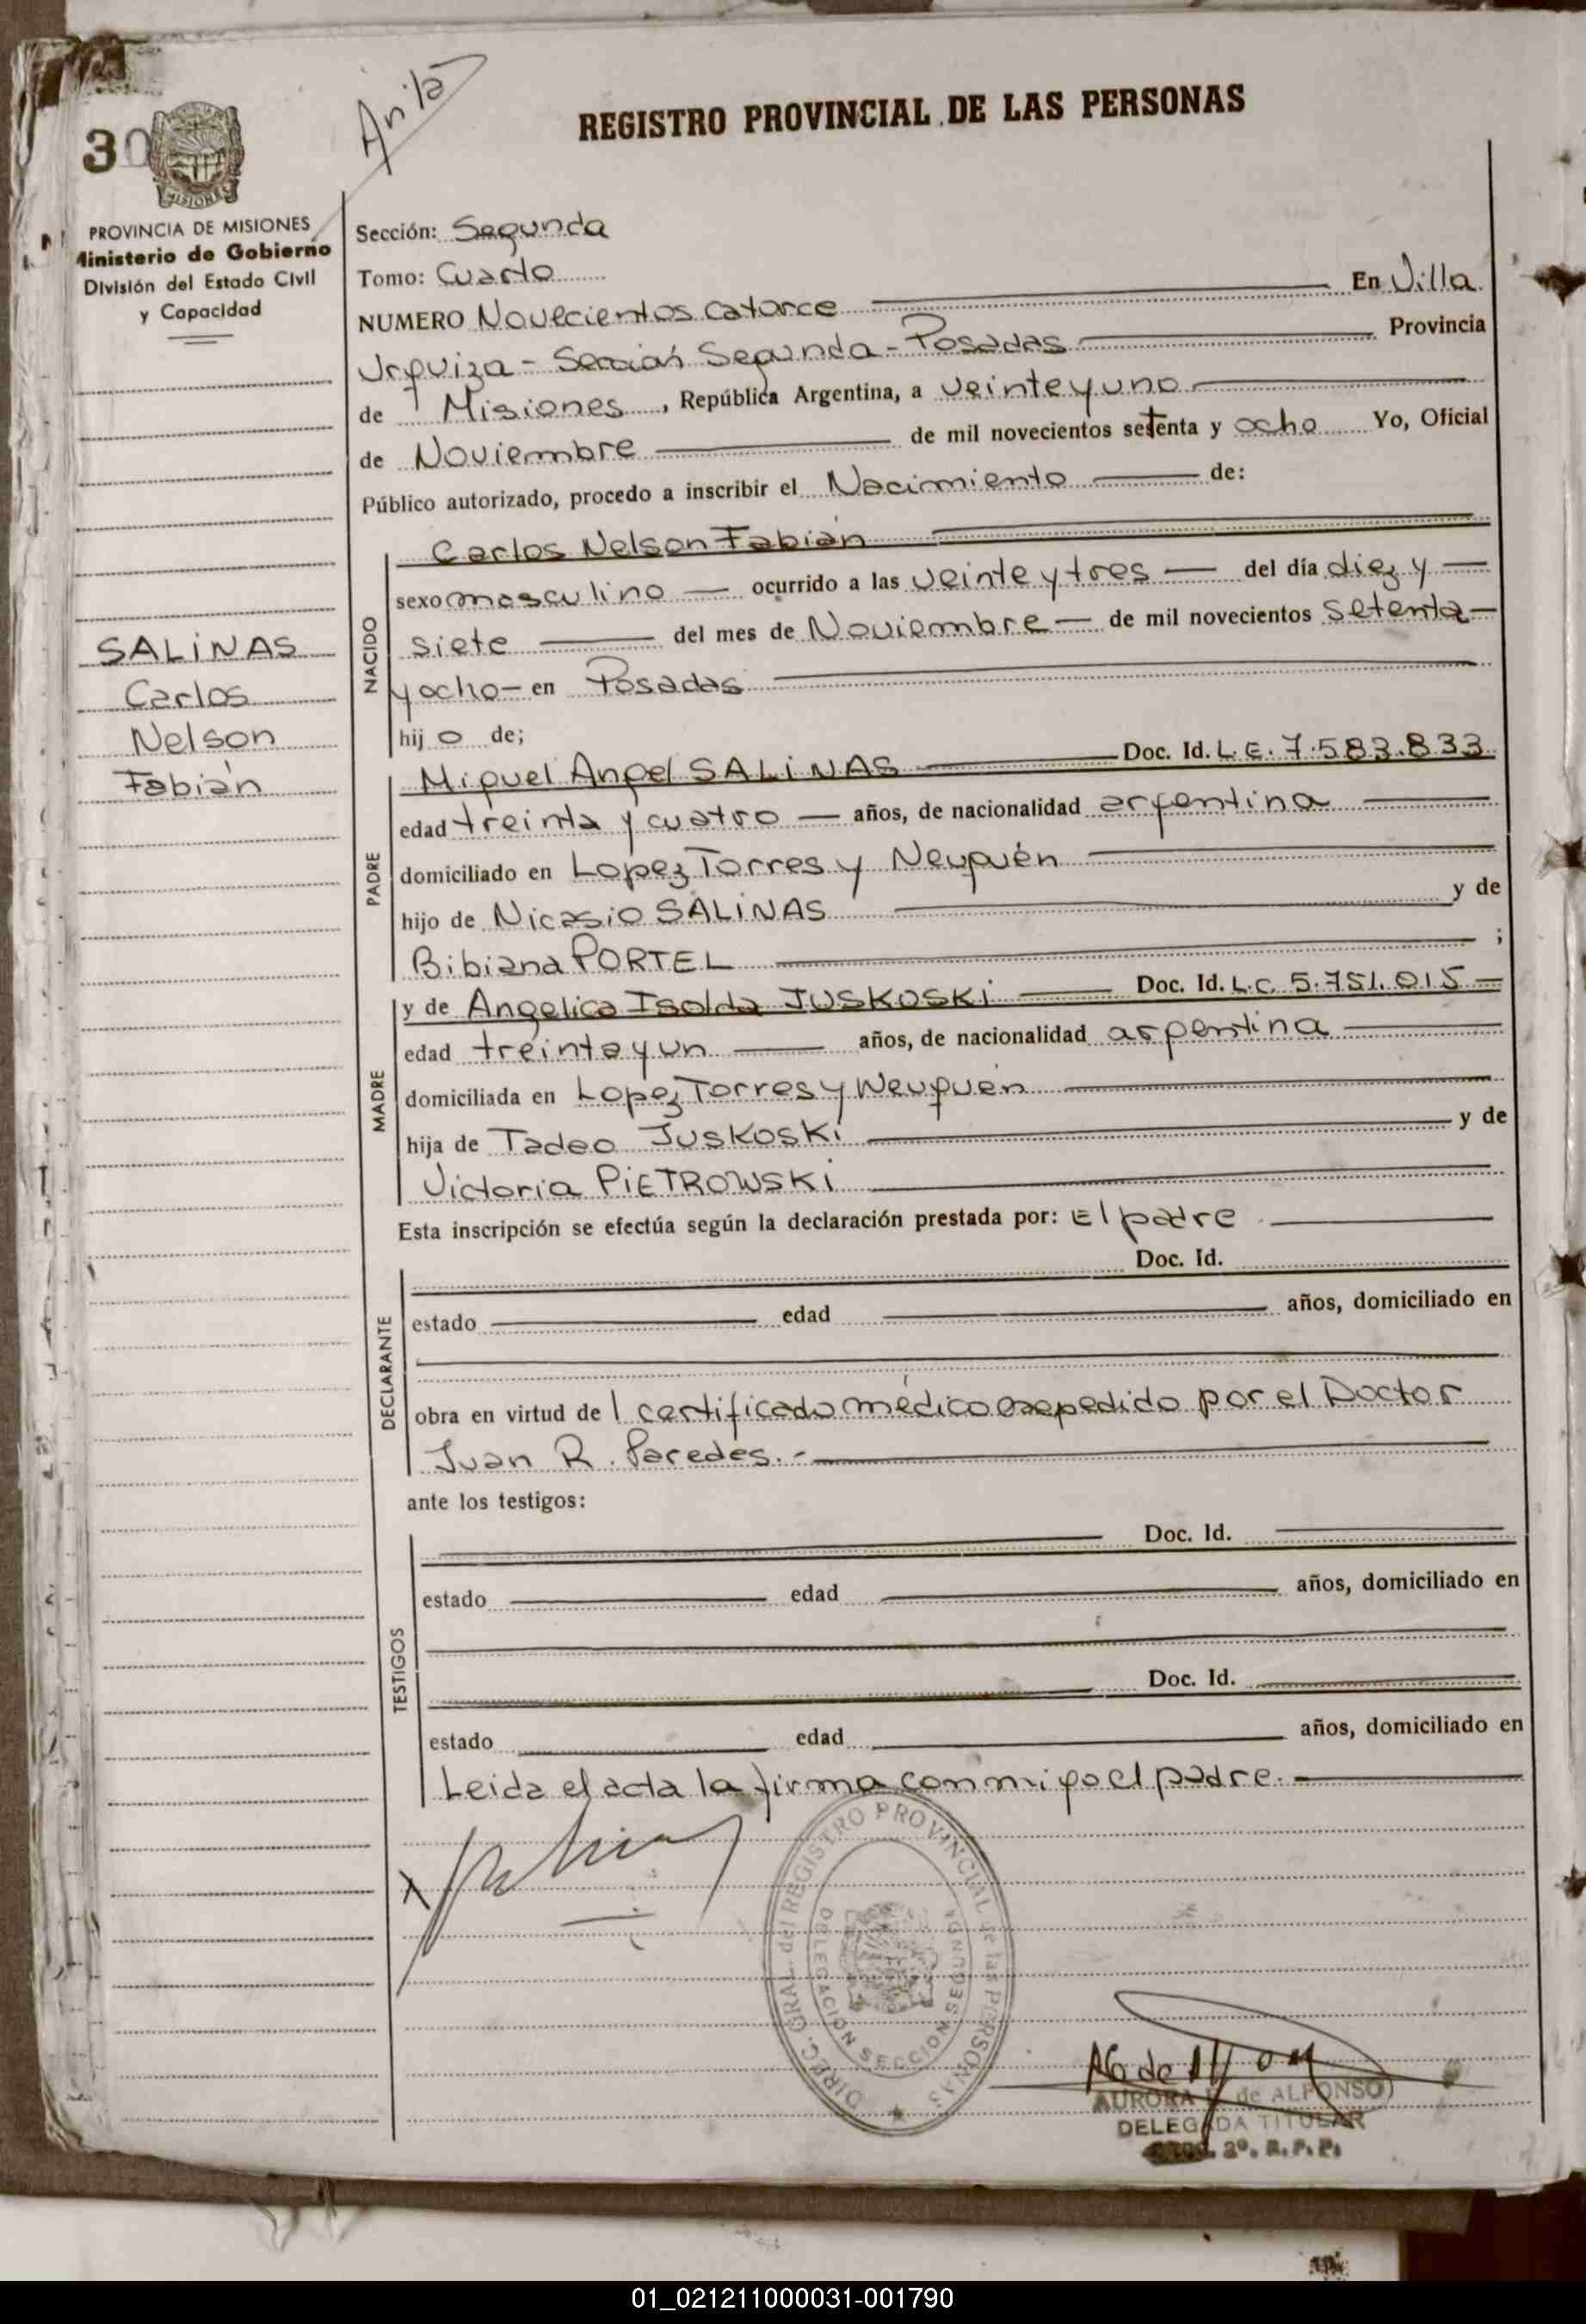 Anita
REGISTRO PROVINCIAL DE LAS PERSONAS
30
MISIONES
PROVINCIA DE MISIONES
Ministerio de Gobierno
División del Estado Civil
y Capacidad
SALINAS
Carlos
Nelson
Fabián
Sección: Segunda
Tomo: Cuarto
NUMERO Novecientos catorce En Villa
Urquiza - Sección Segunda - Posadas Provincia
de Misiones, República Argentina, a veinte y uno
de Noviembre de mil novecientos setenta y ocho Yo, Oficial
Público autorizado, procedo a inscribir el Nacimiento de:
NACIDO
Carlos Nelson Fabián
sexo masculino ocurrido a las veinte y tres del día diez y
siete del mes de Noviembre de mil novecientos setenta
y ocho - en Posadas
hij o de;
PADRE
Miguel Angel SALINAS Doc. Id. L.E. 7.583.833
edad treinta y cuatro años, de nacionalidad argentina
domiciliado en Lopez Torres y Neuquén
hijo de Nicasio SALINAS y de
Bibiana PORTEL ;
MADRE
y de Angelica Isolda JUSKOSKi Doc. Id. L.C 5.751.015
edad treinta y un años, de nacionalidad argentina
domiciliada en Lopez Torres y Neuquén
hija de Tadeo JUSKOSKi y de
Victoria PiETROWSKi
Esta inscripción se efectúa según la declaración prestada por: El padre
DECLARANTE
Doc. Id.
estado edad años, domiciliado en
obra en virtud de l certificado médico expedido por el Doctor
Juan R. Paredes.-
ante los testigos:
TESTIGOS
Doc. Id.
estado edad años, domiciliado en
Doc. Id.
estado edad años, domiciliado en
Leida el acta la firma conmigo el padre.
DIREC. GRAL. del REGISTRO PROVINCIAL de las PERSONAS
DELEGACIÓN SECCION SEGUNDA
AURORA de ALFONSO
DELEGADA TITULAR
2º. R. P. P.
01_021211000031-001790